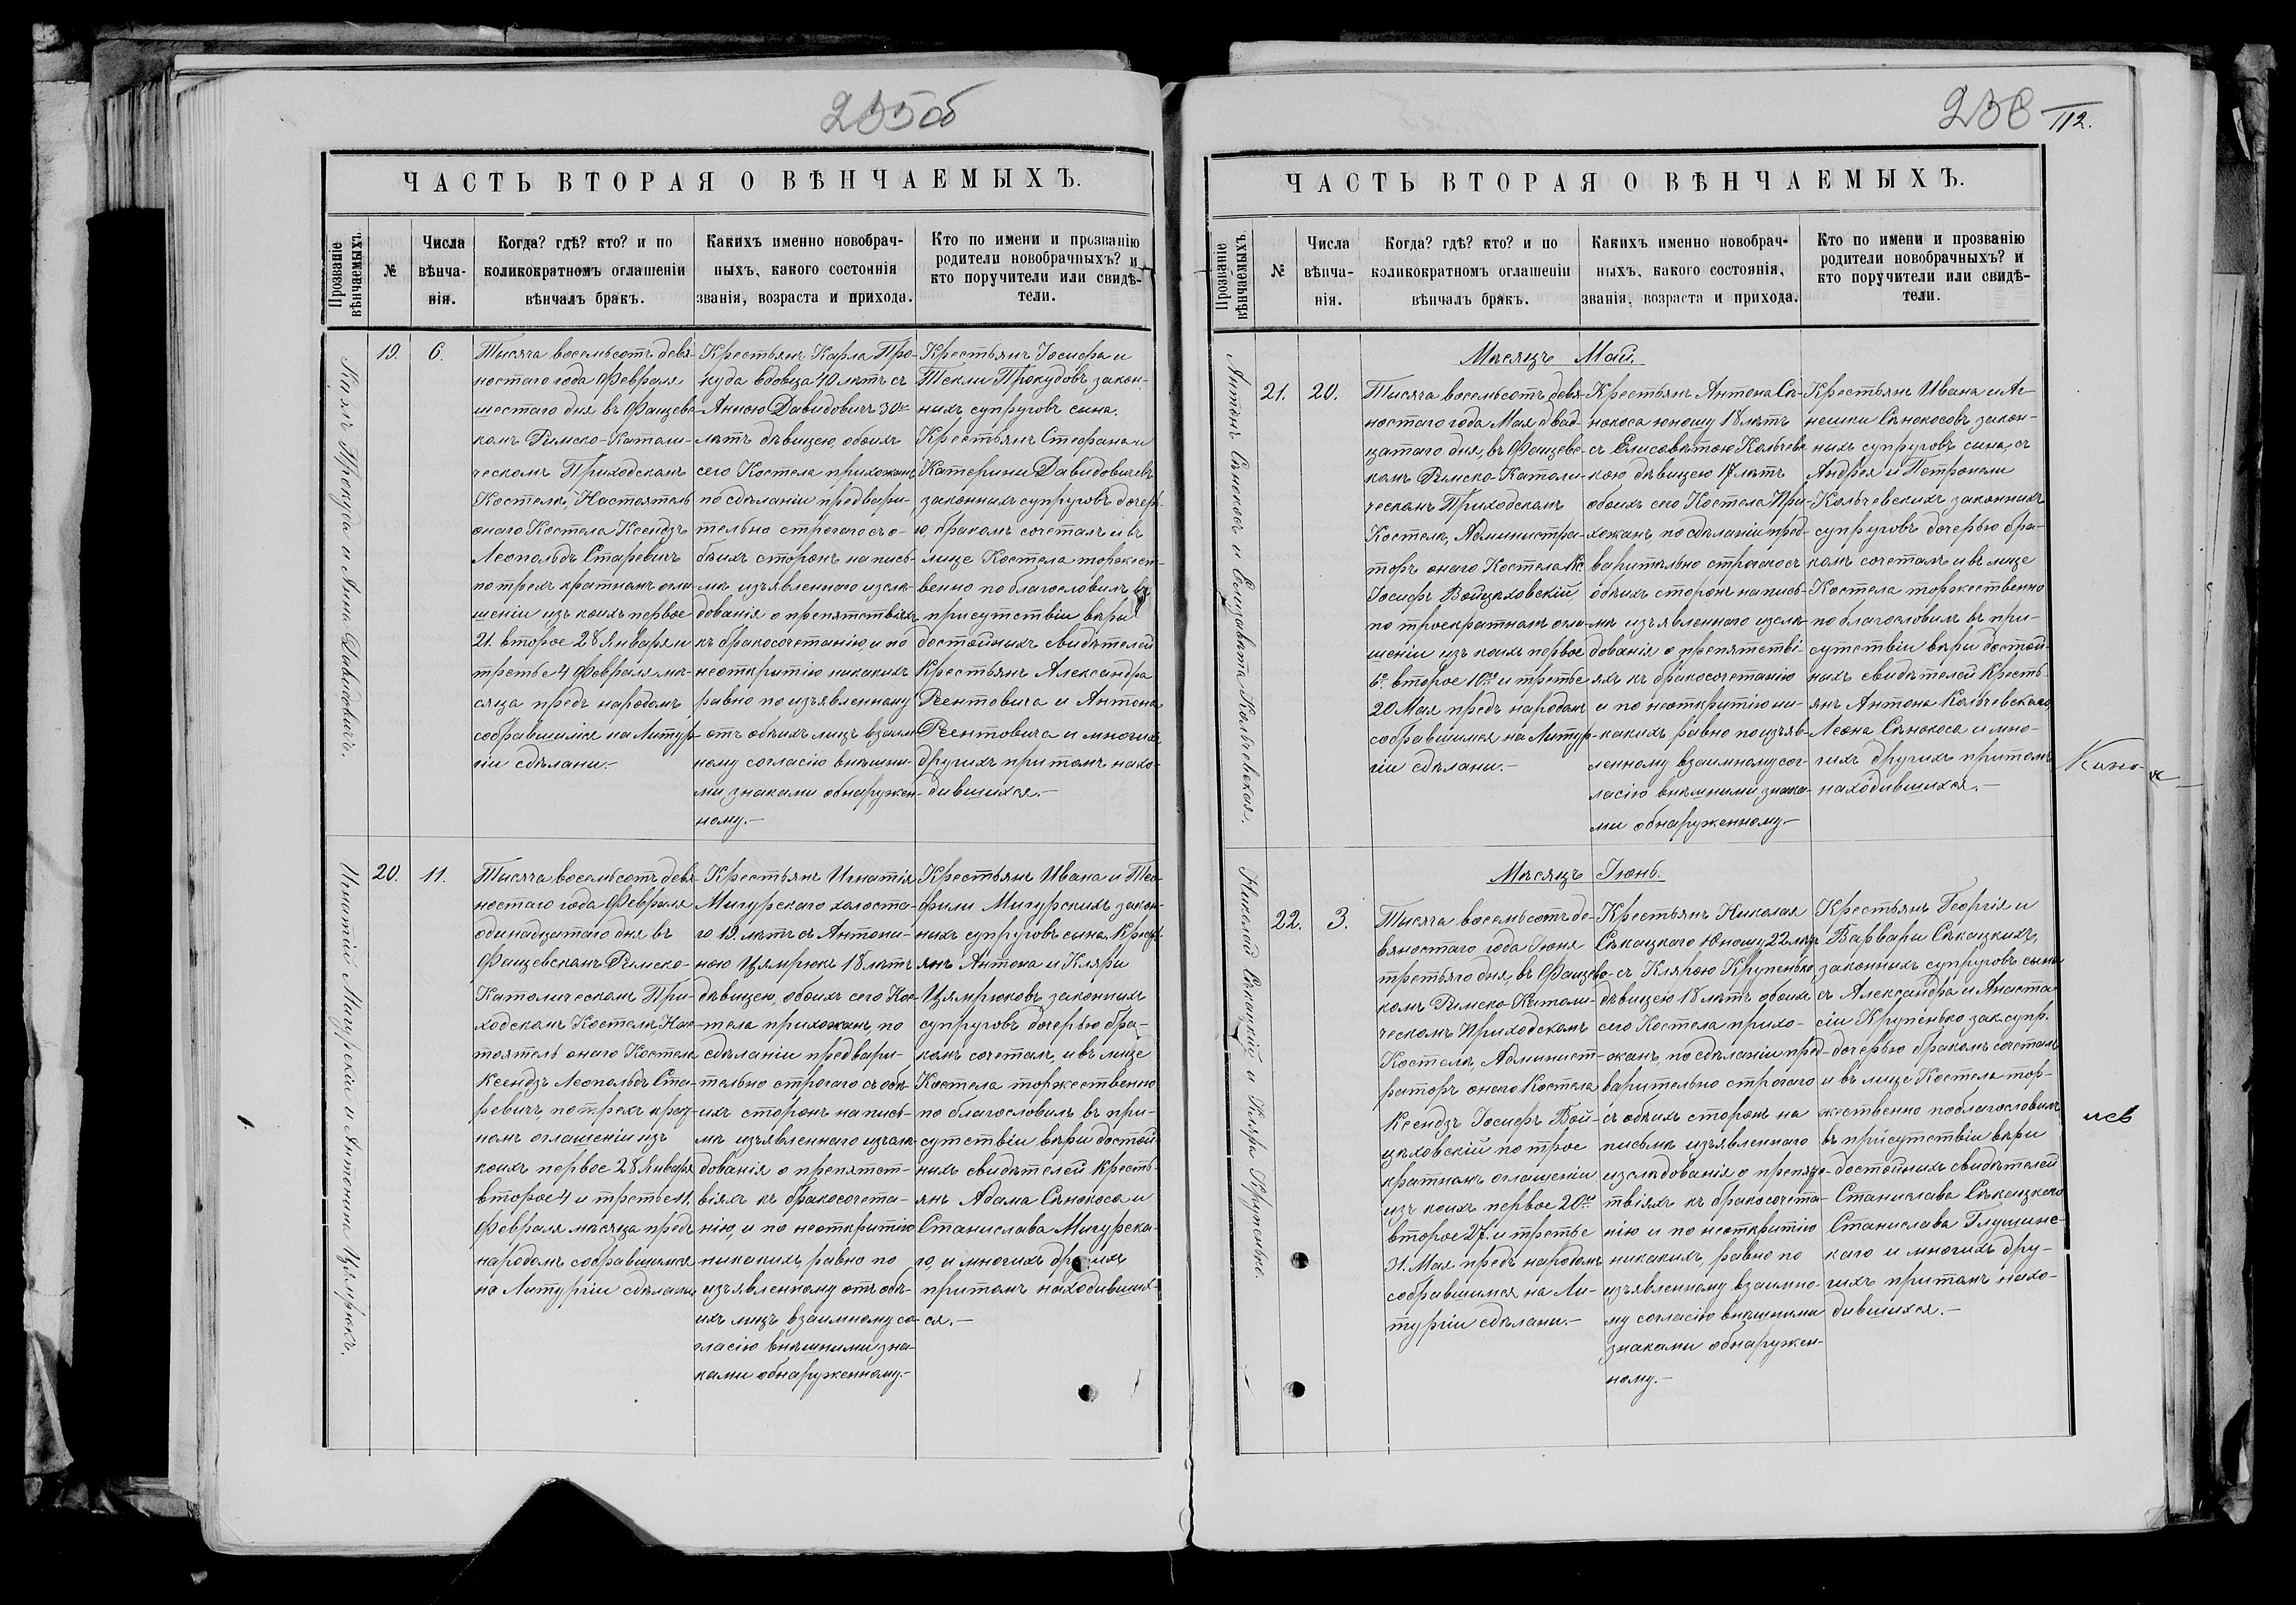 235об
ЧАСТЬ ВТОРАЯ О ВѢНЧАЕМЫХЪ.
Прозваніе вѣнчаемыхъ.
№
Числа вѣнча-
нія.
Когда? гдѣ? кто? и по
коликократномъ оглашеніи
вѣнчалъ бракъ.
Какихъ именно новобрач-
ныхъ, какого состоянія
званія, возраста и прихода.
Кто по имени и прозванію
родители новобрачныхъ? и
кто поручители или свидѣ-
тели.
Карлъ Прокуда и Анна Давидовичъ.
19.
6.
Тысяча восемьсотъ девя-
ностаго года Февраля
шестаго дня въ Фащевс-
комъ Римско-Католи-
ческомъ Приходскомъ
Костелѣ, Настоятель
онаго Костела Ксендзъ
Леопольдъ Старевичъ
по трехъ кратномъ огла-
шеніи изъ коихъ первое
21. второе 28 Января и
третье 4 Февраля мѣ-
сяца предъ народомъ
собравшимся на Литур-
гіи сдѣланы.-
Крестьянъ Карла Про-
куда вдовца 40 лѣтъ съ
Анною Давидовичъ 30ти
лѣтъ дѣвицею, обоихъ
сего Костела прихожанъ
по сдѣланіи предвари-
тельно строгаго съ о-
бѣихъ сторонъ на пись-
мѣ изъявленнаго изслѣ-
дованія о препятствіяхъ
къ бракосочетанію, и по
неоткрытію никакихъ
равно по изъявленному
отъ обѣихъ лицъ взаим-
ному согласію внѣшни-
ми знаками обнаружен-
ному.-
Крестьянъ Іосифа и
Теклы Прокудовъ закон-
ныхъ супруговъ сына.
Крестьянъ Стефана и
Катерины Давидовичевъ
законныхъ супруговъ дочерь-
ю, бракомъ сочеталъ и въ
лице Костела торжест-
венно поблагословилъ въ
присутствіи вѣры
достойныхъ свидѣтелей
Крестьянъ Александра
Рентовича и Антона
Рентовича и многихъ
другихъ притомъ нахо-
дившихся.-
Игнатій Мигурскій и Антонина Цямрюкъ.
20.
11.
Тысяча восемьсотъ девя-
ностаго года Февраля
одинадцатаго дня въ
Фащевскомъ Римско-
Католическомъ При-
ходскомъ Костелѣ Нас-
тоятель онаго Костела
Ксендзъ Леопольдъ Ста-
ревичъ, по трехъ крат-
номъ оглашеніи изъ
коихъ первое 28 Января
второе 4 и третье 11.
Февраля мѣсяца предъ
народомъ собравшимся
на Литургіи сдѣланы
Крестьянъ Игнатія
Мигурскаго холоста-
го 19. лѣтъ съ Антони-
ною Цямрюкъ 18 лѣтъ
дѣвицею, обоихъ сего Кос-
тела прихожанъ, по
сдѣланіи предвари-
тельно строгаго съ обѣ-
ихъ сторонъ на пись-
мѣ изъявленнаго изслѣ-
дованія о препятст-
віяхъ къ бракосочета-
нію, и по неоткрытію
никакихъ равно по
изъявленному отъ обѣ-
ихъ лицъ взаимному со-
гласію внѣшними зна-
ками обнаруженному.-
Крестьянъ Ивана и Тео-
филы Мигурскихъ закон-
ныхъ супруговъ сына, Крес-
янъ Антона и Кляры
Цямрюковъ законныхъ
супруговъ дочерью бра-
комъ сочеталъ, и въ лице
Костела торжественно
поблагословилъ въ при-
сутствіи вѣры достой-
ныхъ свидѣтелей Кресть-
янъ Адама Сѣнокоса и
Станислава Мигурска-
го, и многихъ другихъ
притомъ находивших-
ся.-
236
112.
ЧАСТЬ ВТОРАЯ О ВѢНЧАЕМЫХЪ.
Прозваніе вѣнчаемыхъ.
№
Числа вѣнча-
нія.
Когда? гдѣ? кто? и по
коликократномъ оглашеніи
вѣнчалъ бракъ.
Какихъ именно новобрач-
ныхъ, какого состоянія,
званія, возраста и прихода.
Кто по имени и прозванію
родители новобрачныхъ? и
кто поручители или свидѣ-
тели.
Мѣсяцъ Май.
Антонъ Сѣнокосъ и Елизавета Кольчевская.
21.
20.
Тысяча восемьсотъ девя-
ностаго года Мая двад-
цатаго дня, въ Фащевс-
комъ Римско-Католи-
ческомъ Приходскомъ
Костелѣ, Администра-
торъ онаго Костела Кс
Іосифъ Войцѣховскій
по троекратномъ огла-
шеніи изъ коихъ первое
6е. второе 10го и третье
20 Мая предъ народомъ
собравшимся на Литур-
гіи сдѣланы.-
Крестьянъ Антона Сѣ-
нокоса юношу 18 лѣтъ
съ Елисаветою Кольчевс-
кою дѣвицею 17 лѣтъ
обоихъ сего Костела При-
хожанъ по сдѣланіи пред-
варительно строгаго съ
обѣихъ сторонъ на пись-
мѣ изъявленнаго изслѣ-
дованія о препятстві-
яхъ къ бракосочетанію
и по неоткрытію ни-
какихъ равно по изъяв-
ленному взаимному сог-
ласію внѣшними знака-
ми обнаруженному.-
Крестьянъ Ивана и Аг-
нешки Сѣнокосовъ закон-
ныхъ супруговъ сына, съ
Андрея и Петронели
Кольчевскихъ законныхъ
супруговъ дочерью бра-
комъ сочеталъ и въ лице
Костела торжественно
поблагословилъ въ при-
сутствіи вѣры достой-
ныхъ свидѣтелей Кресть-
янъ Антона Кольчевскаго,
Леона Сѣнокоса и мно-
гихъ другихъ притомъ
находившихся.-
Мѣсяцъ Іюнь.
Николай Сѣкацкій и Кляра Крупенько.
22.
3.
Тысяча восемьсотъ де-
вяностаго года Іюня
третьяго дня, въ Фащевс-
комъ Римско-Католи-
ческомъ Приходскомъ
Костелѣ, Админист-
раторъ онаго Костела
Ксендзъ Іосифъ Вой-
цѣховскій по трое
кратномъ оглашеніи
изъ коихъ первое 20го
второе 27. и третье
31. Мая предъ народомъ
собравшимся на Ли-
тургіи сдѣланы.-
Крестьянъ Николая
Сѣкацкаго Юношу 22 лѣтъ
съ Клярою Крупенько
дѣвицею 18 лѣтъ обоихъ
сего Костела прихо-
жанъ, по сдѣланіи пред-
варительно строгаго
съ обѣихъ сторонъ на
письмѣ изъявленнаго
изслѣдованія о препят-
ствіяхъ къ бракосочета-
нію и по неоткрытію
никакихъ, равно по
изъявленному взаимно-
му согласію внѣшними
знаками обнаружен-
ному.-
Крестьянъ Георгія и
Варвары Сѣкацкихъ,
законныхъ супруговъ сына
съ Александра и Анаста-
сіи Крупенько зак. супр.
дочерью бракомъ сочеталъ
и въ лице Костела тор-
жественно поблагословилъ
въ присутствіи вѣры
достойныхъ свидѣтелей
Станислава Сѣкацкаго
Станислава Глушинс-
каго и многихъ дру-
гихъ притомъ нахо-
дившихся.-